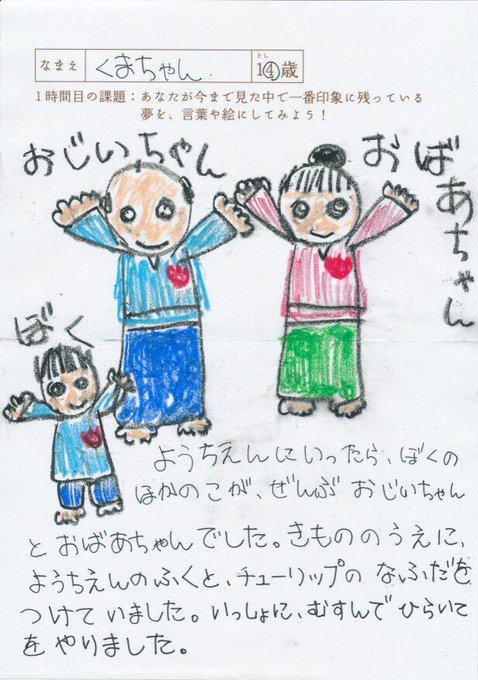 なまえ くまちゃん
とし
14歳
1時間目の課題：あなたが今まで見た中で一番印象に残っている
夢を、言葉や絵にしてみよう！
おじいちゃん
おばあちゃん
ぼく
ようちえんにいったら、ぼくの
ほかのこが、ぜんぶ おじいちゃん
とおばあちゃんでした。きもののうえに、
ようちえんのふくと、チューリップの なふだを
つけていました。いっしょに、むすんでひらいて
をやりました。